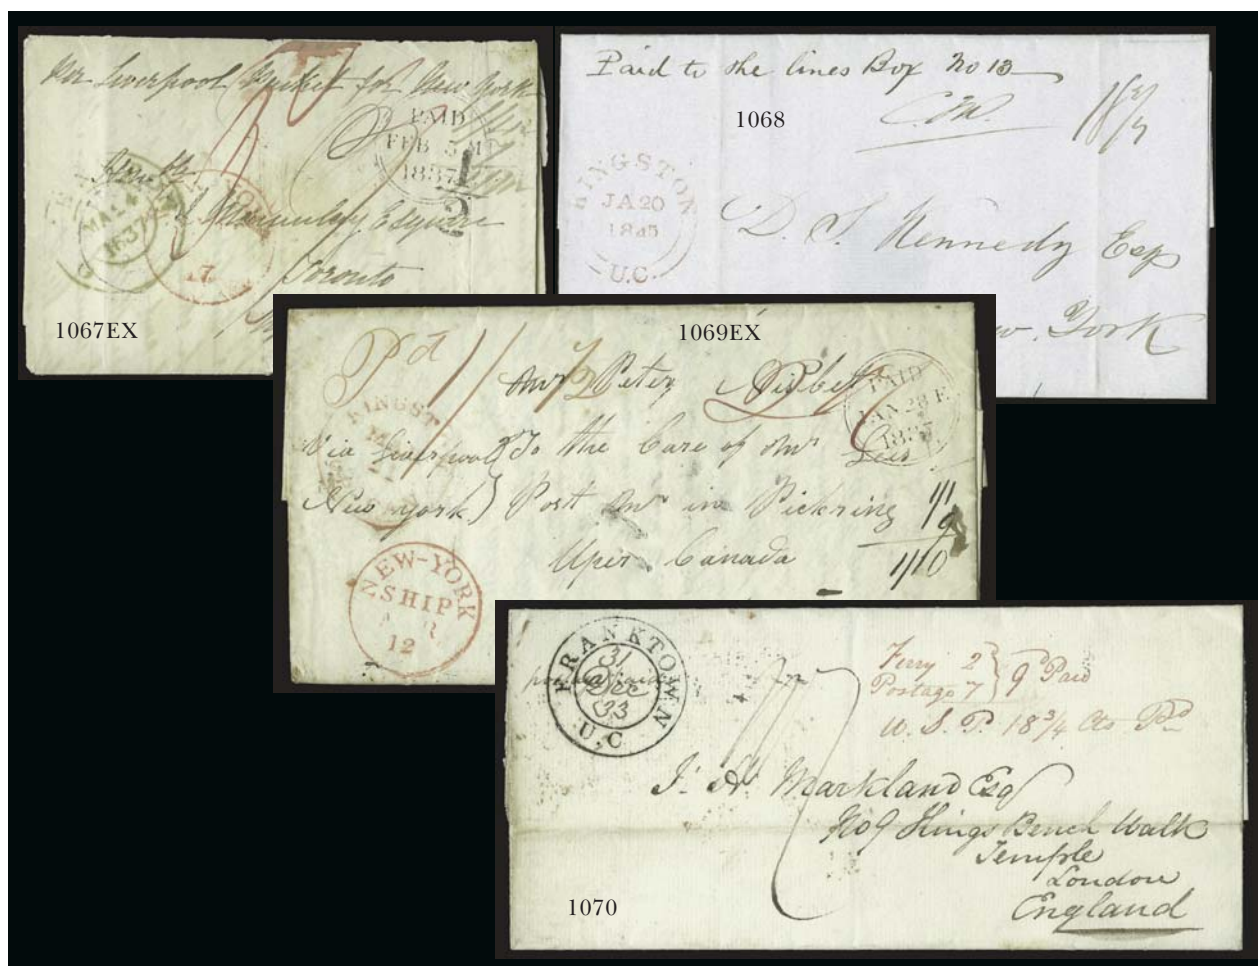 Per Liverpool Packet for New York
PAID
FEB 3
1837
1
2
MA 24
1837
Esquire
Toronto
17
1067EX
Paid to the lines Box No 13
1068
18 3/4
KINGSTON
JA 20
1845
U.C.
D. S. Kennedy Esq
New York
1069EX
Pd 1/
Mr Peter Nisbet
PAID
JAN 28
1837
KINGST
Via Liverpool & To the Care of Mr
New York Post Mr in Pickring
Uper Canada
1/1
9
1/10
NEW-YORK
SHIP
APR
12
FRANKTOWN
31
Dec
33
U.C
Ferry 2
Postage 7 } 9d Paid
U. S. P. 18 3/4 Cts Pd
Markland Esq
No 9 Kings Bench Walk
Temple
London
England
1070